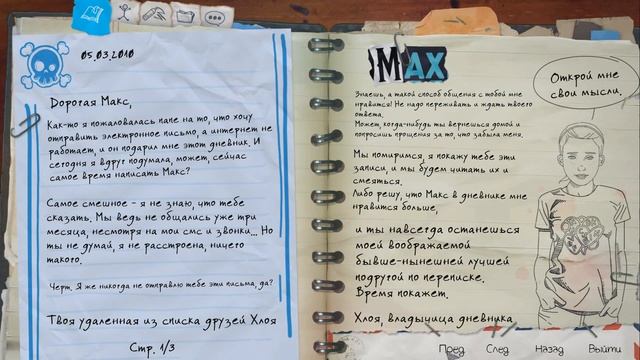 05.03.2010
Дорогая Макс,
Как-то я пожаловалась папе на то, что хочу
отправить электронное письмо, а интернет не
работает, и он подарил мне этот дневник. И
сегодня я вдруг подумала, может, сейчас
самое время написать Макс?
Самое смешное - я не знаю, что тебе
сказать. Мы ведь не общались уже три
месяца, несмотря на мои смс и звонки... Но
ты не думай, я не расстроена, ничего
такого.
Черт. Я же никогда не отправлю тебе эти письма, да?
Твоя удаленная из списка друзей Хлоя
Стр. 1/3
MAX
Знаешь, а такой способ общения с тобой мне
нравится! Не надо переживать и ждать твоего
ответа.
Может, когда-нибудь ты вернешься домой и
попросишь прощения за то, что забыла меня.
Мы помиримся, я покажу тебе эти
записи, и мы будем читать их и
смеяться.
Либо решу, что Макс в дневнике мне
нравится больше,
и ты навсегда останешься
моей воображаемой
бывше-нынешней лучшей
подругой по переписке.
Время покажет.
Хлоя, владычица дневника
Открой мне
свои мысли.
Пред. След. Назад Выйти